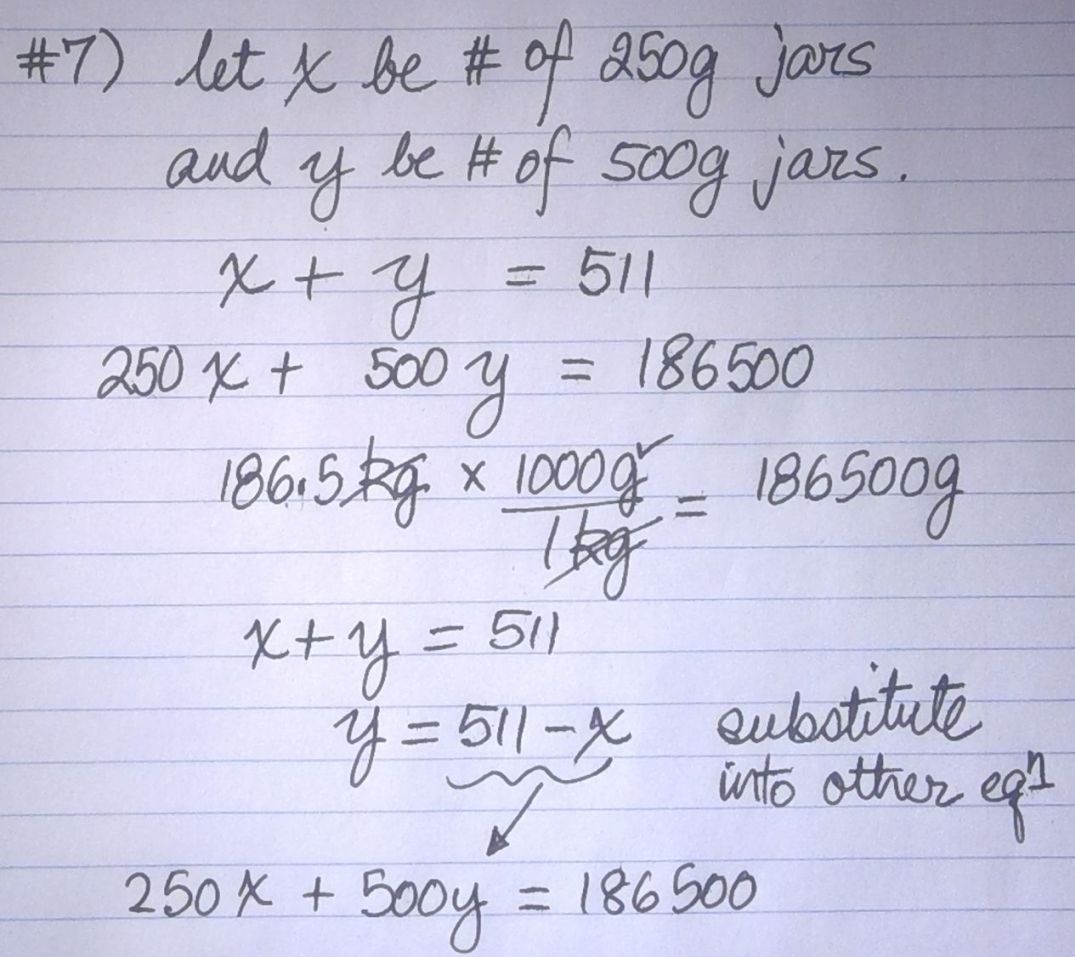 #7) let x be # of 250g jars
and y be # of 500g jars.
x + y = 511
250x + 500y = 186500
186.5kg x 1000g/1kg = 186500g
x+y = 511
y = 511-x substitute
into other eqn
250x + 500y = 186500